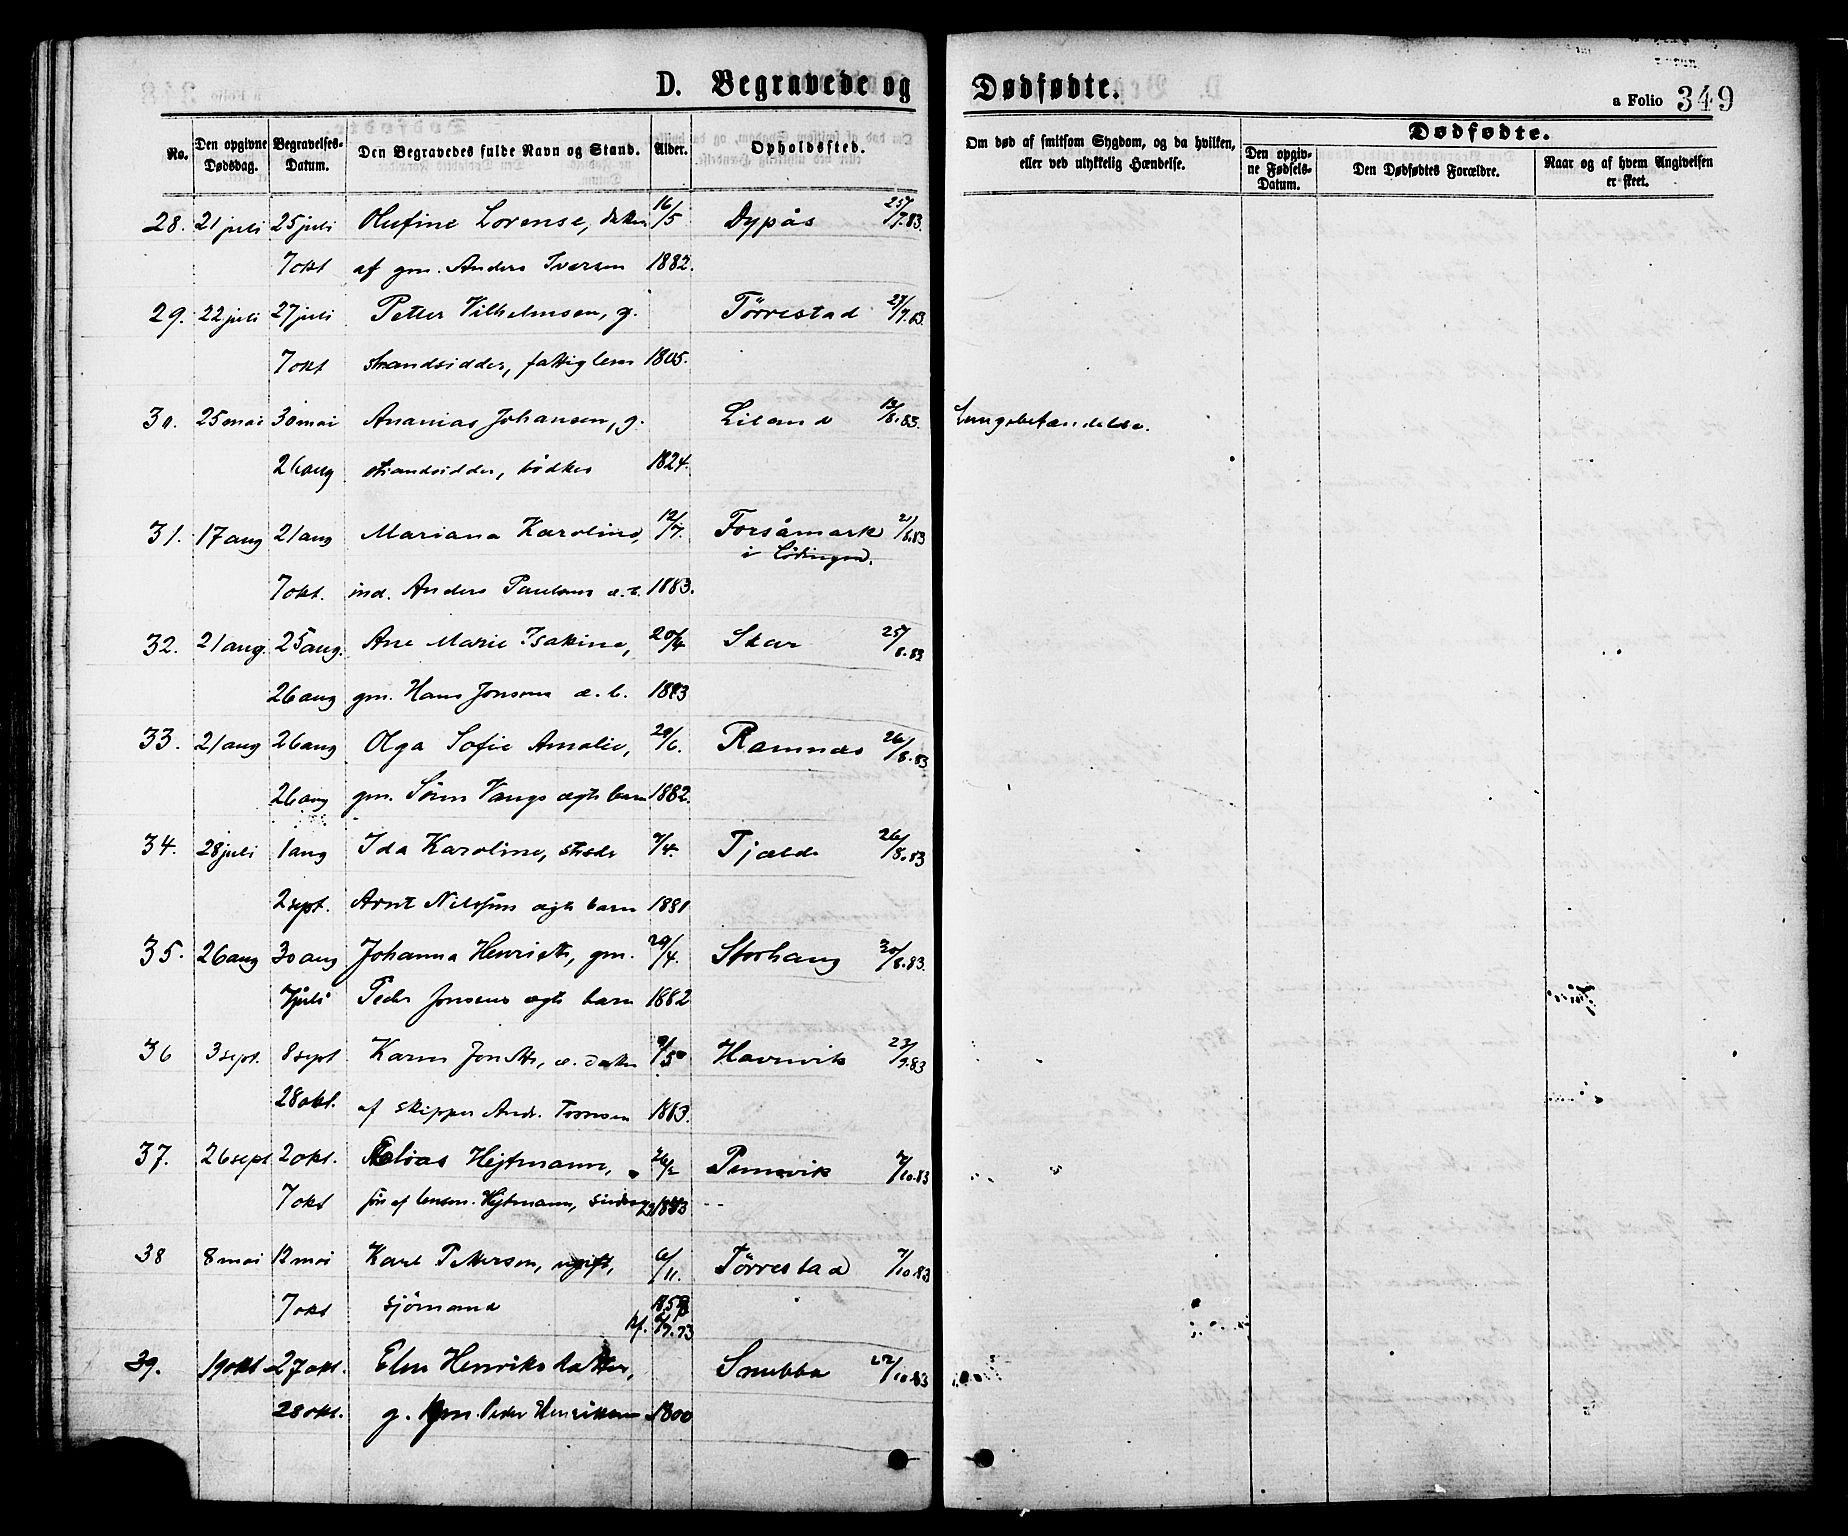 D. Begravede og Dødfødte.
a Folio 349
No.
Den opgivne Dødsdag.
Begravelses-Datum.
Den Begravedes fulde Navn og Stand.
Alder.
Opholdssted.
Om død af smitsom Sygdom, og da hvilken, eller ved ulykkelig Hændelse.
Dødfødte.
Den opgivne Fødsels-Datum.
Den Dødfødtes Forældre.
Naar og af hvem Angivelsen er skeet.
28. 21 juli 25 juli Olufine Lorense, datter 16/5 Dypås 25/7.83.
7 okt af gm. Anders Iversen 1882.
29. 22 juli 27 juli Petter Vilhelmsen, g. Tørrestad 27/7.83.
7 okt strandsidder, fattiglem 1805.
30. 25 mai 30 mai Ananias Johansen, g. Liland 13/8.83. Lungebetændelse.
26 aug strandsidder, bødker 1824.
31. 17 aug 21 aug Mariana Karoline, 12/7. Forsåmark 21/8.83
i Lødingen.
7 okt. ind. Anders Paulsens æ. b. 1883.
32. 21 aug. 25 aug. Ane Marie Isakine, 20/4 Skar 25/8.83
26 aug gm. Hans Jensens æ. b. 1883
33. 21 aug 26 aug Olga Sofie Amalie, 29/6. Ramnæs 26/8.83
26 aug gm. Sören Vangs ægte barn 1882.
34. 28 juli 1 aug Ida Karoline, strsdr 7/4. Tjælde 26/8.83
2 sept. Arnt Nilssens ægte barn 1881
35. 26 aug 30 aug Johanna Henriette, gm. 29/4. Storhaug 30/8.83.
7 juli Peder Jensens ægte barn 1882
36 3 sept. 8 sept Karen Jonette, æ. datter 9/5 Havnvik 23/9.83
28 okt. af skipper Andr. Tomsen 1863.
37. 26 sept 2 okt. Elias Hejtmann, 26/2 Punsvik 7/10.83
7 okt søn af lensm. Hejtmann, 1883
38 8 mai 12 mai Karl Petersen, ugift, 6/11. Tørrestad 7/10.83
7 okt sjömand
39. 19 okt 27 okt. Elen Henriksdatter, Snubba 27/10.83
28 okt. g. gm. Peder Henriksen 1800